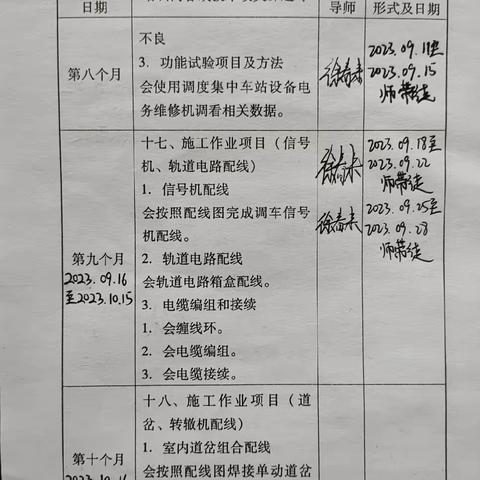 日期
导师
形式及日期
不良
3. 功能试验项目及方法
会使用调度集中车站设备电
务维修机调看相关数据。
第八个月
徐春来
2023.09.11至
2023.09.15
师带徒
十七、施工作业项目（信号
机、轨道电路配线）
1. 信号机配线
会按照配线图完成调车信号
机配线。
2. 轨道电路配线
会轨道电路箱盒配线。
3. 电缆编组和接续
1. 会缠线环。
2. 会电缆编组。
3. 会电缆接续。
第九个月
2023.09.16
至2023.10.15
徐春来
2023.09.18至
2023.09.22
师带徒
徐春来
2023.09.25至
2023.09.28
师带徒
十八、施工作业项目（道
岔、转辙机配线）
1. 室内道岔组合配线
会按照配线图焊接单动道岔
第十个月
2023.10.16